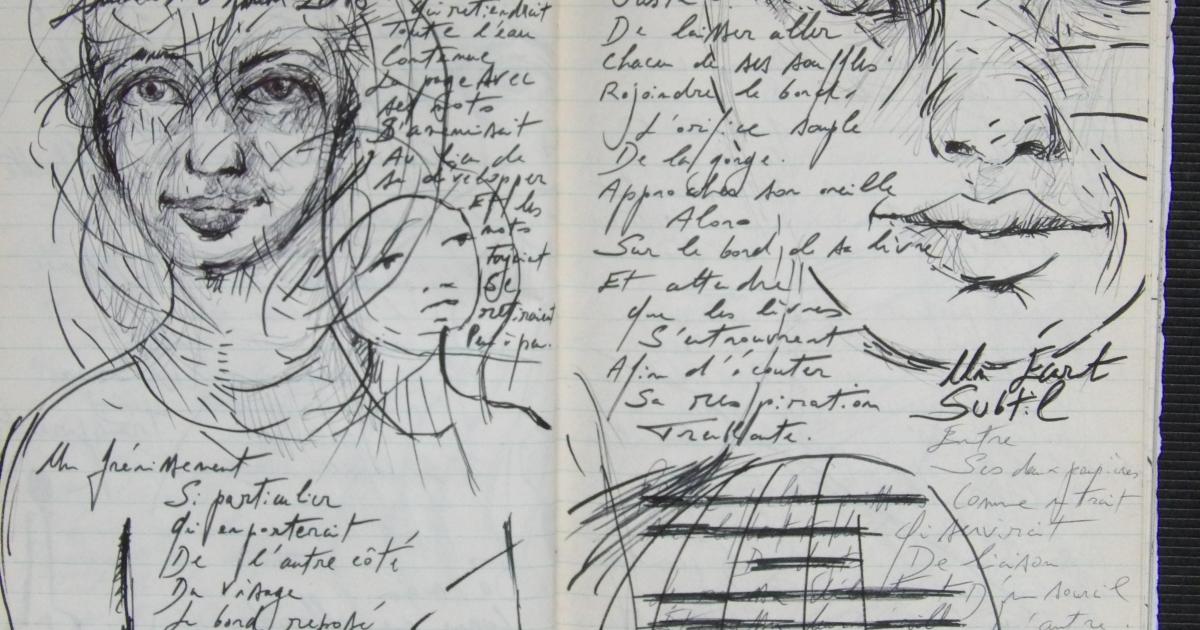 qui retiendrait
Toute l'eau
Contenue
La page Avec
ses mots
S'amenuisait
Au lieu de
se développer
Et les
mots
se
retiraient
Peu à peu.
Un frémissement
Si particulier
Qui emporterait
De l'autre côté
Du visage
Le bord reposé
Juste
De laisser aller
Chacun de ses souffles
Rejoindre le bord
L'orifice souple
De la gorge.
Approcher son oreille
Alors
Sur le bord de sa lèvre
Et attendre
que les lèvres
S'entrouvrent
Afin d'écouter
Sa respiration
Un Écart
Subtil
Entre
Ses deux paupières
Comme un trait
Qui servirait
De liaison
D'un sourcil
l'autre.